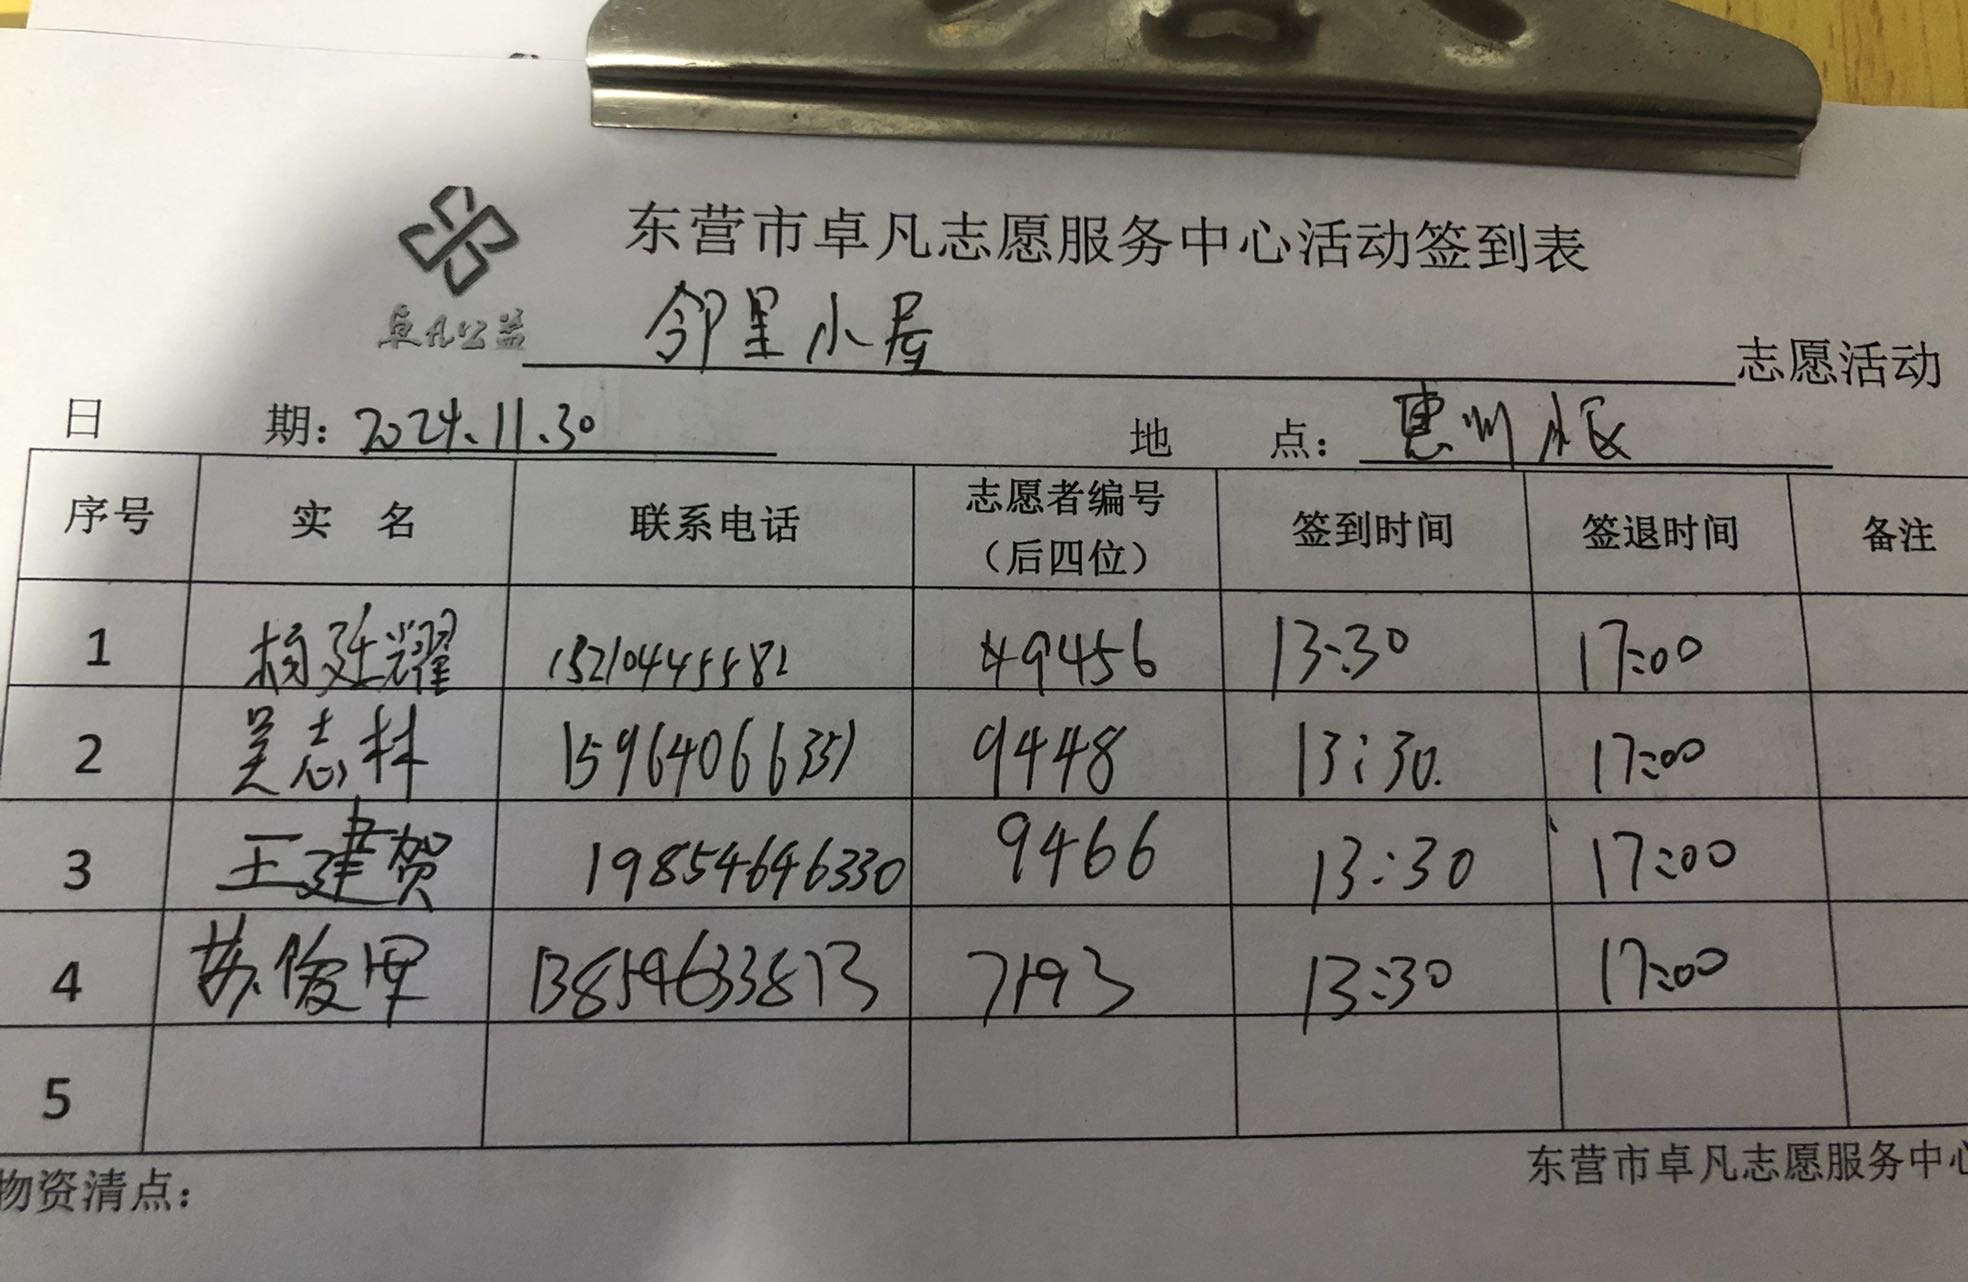 东营市卓凡志愿服务中心活动签到表
卓凡公益 邻里小屋 志愿活动
日 期：2024.11.30 地 点：惠州
序号 实 名 联系电话 志愿者编号（后四位） 签到时间 签退时间 备注
1 杨延耀 15210445582 9456 13:30 17:00
2 吴志林 15964066351 9448 13:30. 17:00
3 王建贺 19854646330 9466 13:30 17:00
4 苏俊 13859633873 7193 13:30 17:00
5
物资清点：
东营市卓凡志愿服务中心